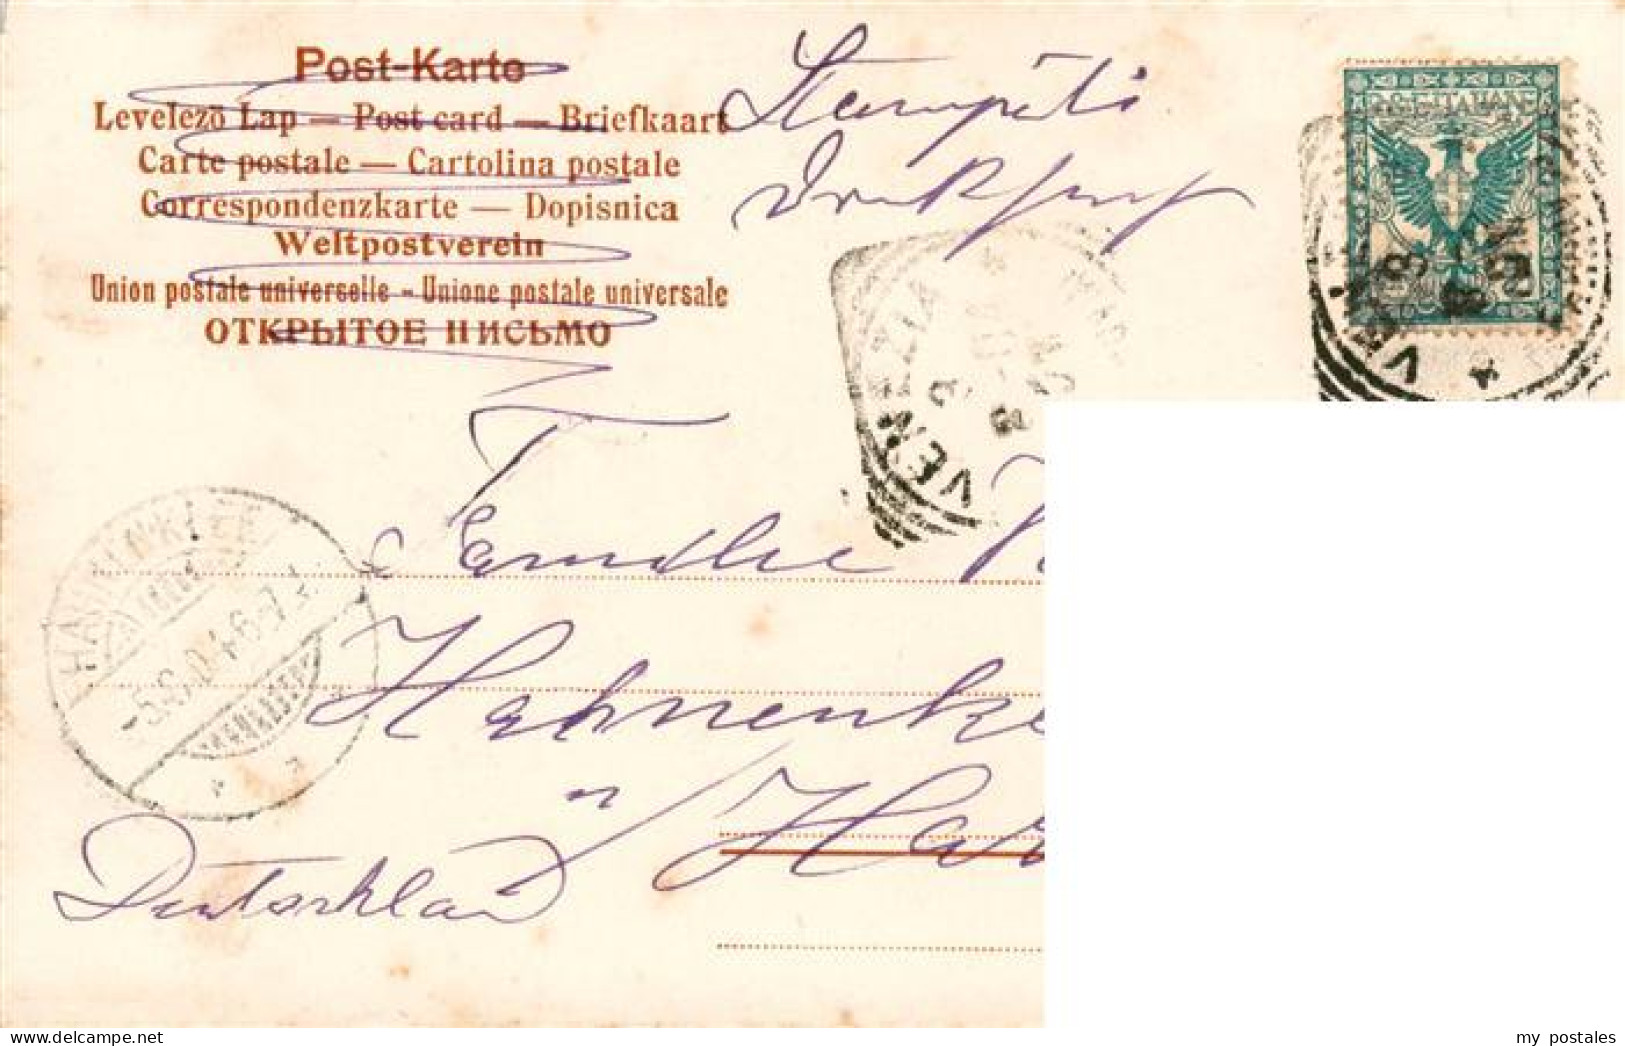 Post-Karte
Levelező Lap — Post card — Briefkaart
Carte postale — Cartolina postale
Correspondenzkarte — Dopisnica
Weltpostverein
Union postale universelle - Unione postale universale
ОТКРЫТОЕ ПИСЬМО
Stampati
Drucksache
VENEZIA
HAHNENKLEE
5.6.04 6-7
Familie
Hahnenkle
a/Har
Deutschland
my postales